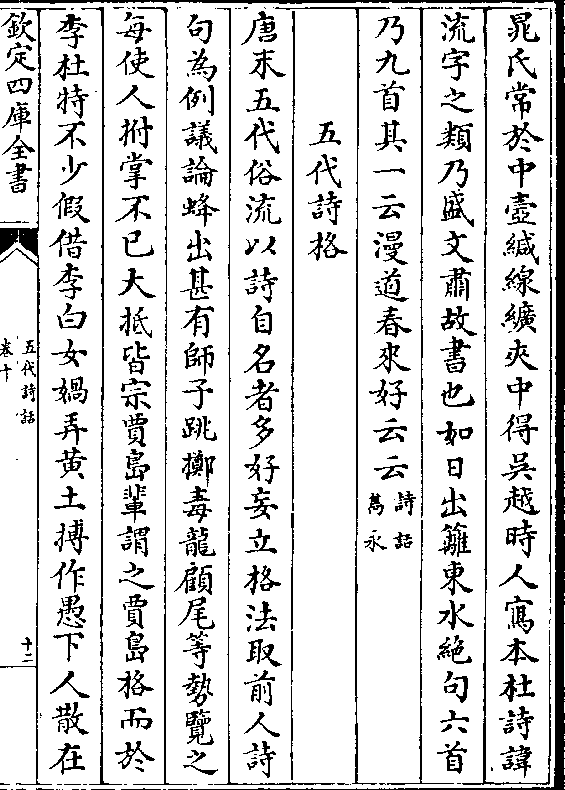 晁氏常於中壼緘線纊夾中得吳越時人寫本杜詩諱
流字之類乃盛文肅故書也如日出籬東水絶句六首
乃九首其一云漫道春來好云云詩話雋永
五代詩格
唐末五代俗流以詩自名者多好妄立格法取前人詩
句為例議論蜂出甚有師子跳擲毒龍顧尾等勢覽之
每使人拊掌不已大抵皆宗賈島輩謂之賈島格而於
李杜特不少假借李白女媧弄黄土摶作愚下人散在
欽定四庫全書
五代詩話
卷十
十二